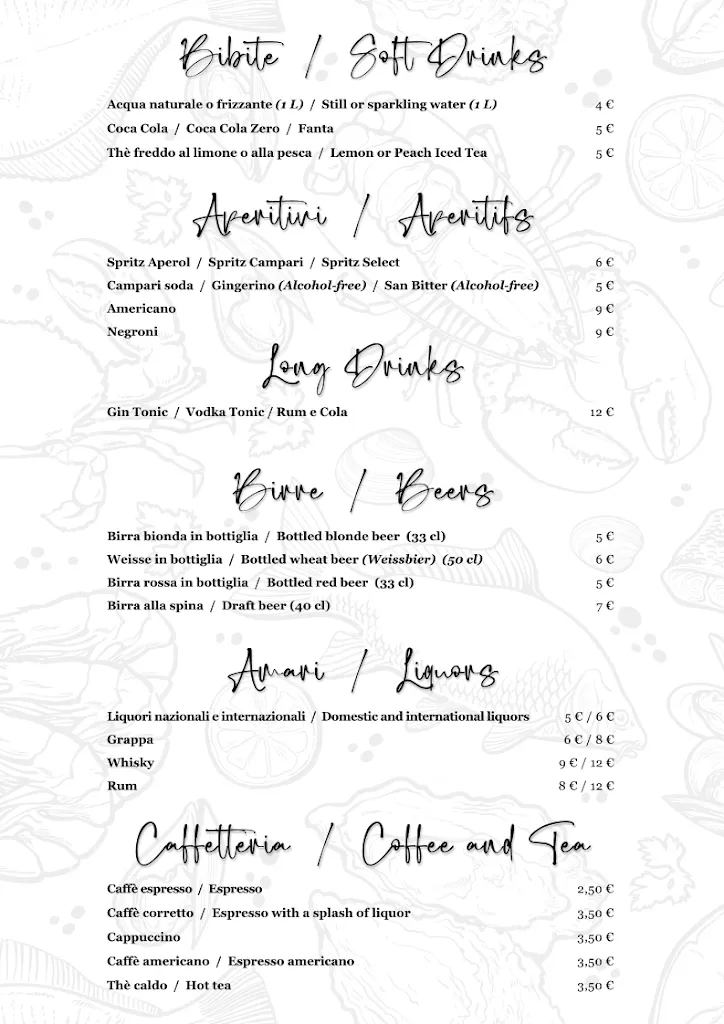 Bibite / Soft Drinks
Acqua naturale o frizzante (1 L) / Still or sparkling water (1 L) 4 €
Coca Cola / Coca Cola Zero / Fanta 5 €
Thè freddo al limone o alla pesca / Lemon or Peach Iced Tea 5 €
Aperitivi / Aperitifs
Spritz Aperol / Spritz Campari / Spritz Select 6 €
Campari soda / Gingerino (Alcohol-free) / San Bitter (Alcohol-free) 5 €
Americano 9 €
Negroni 9 €
Long Drinks
Gin Tonic / Vodka Tonic / Rum e Cola 12 €
Birre / Beers
Birra bionda in bottiglia / Bottled blonde beer (33 cl) 5 €
Weisse in bottiglia / Bottled wheat beer (Weissbier) (50 cl) 6 €
Birra rossa in bottiglia / Bottled red beer (33 cl) 5 €
Birra alla spina / Draft beer (40 cl) 7 €
Amari / Liquors
Liquori nazionali e internazionali / Domestic and international liquors 5 € / 6 €
Grappa 6 € / 8 €
Whisky 9 € / 12 €
Rum 8 € / 12 €
Caffetteria / Coffee and Tea
Caffè espresso / Espresso 2,50 €
Caffè corretto / Espresso with a splash of liquor 3,50 €
Cappuccino 3,50 €
Caffè americano / Espresso americano 3,50 €
Thè caldo / Hot tea 3,50 €